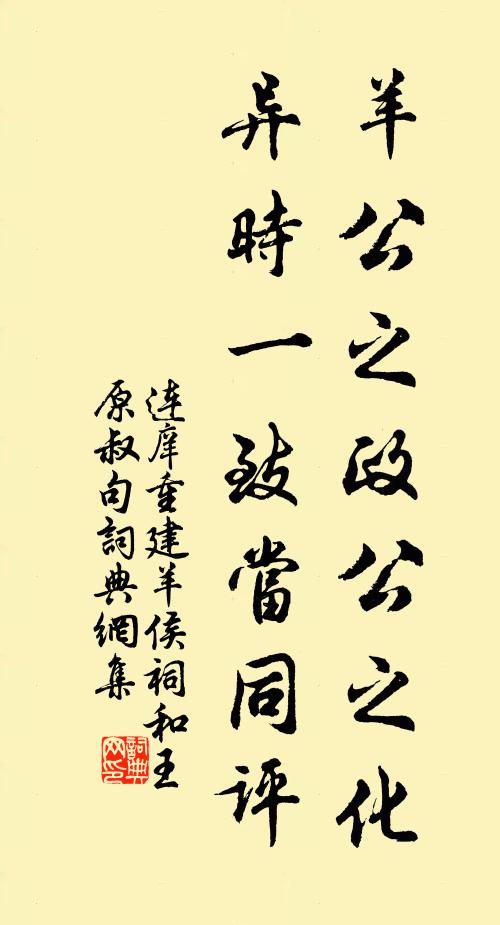 羊公之政公之化
异時一致當同評
连庠重建羊侯祠和王
原叔句詞典網集
詞典网印